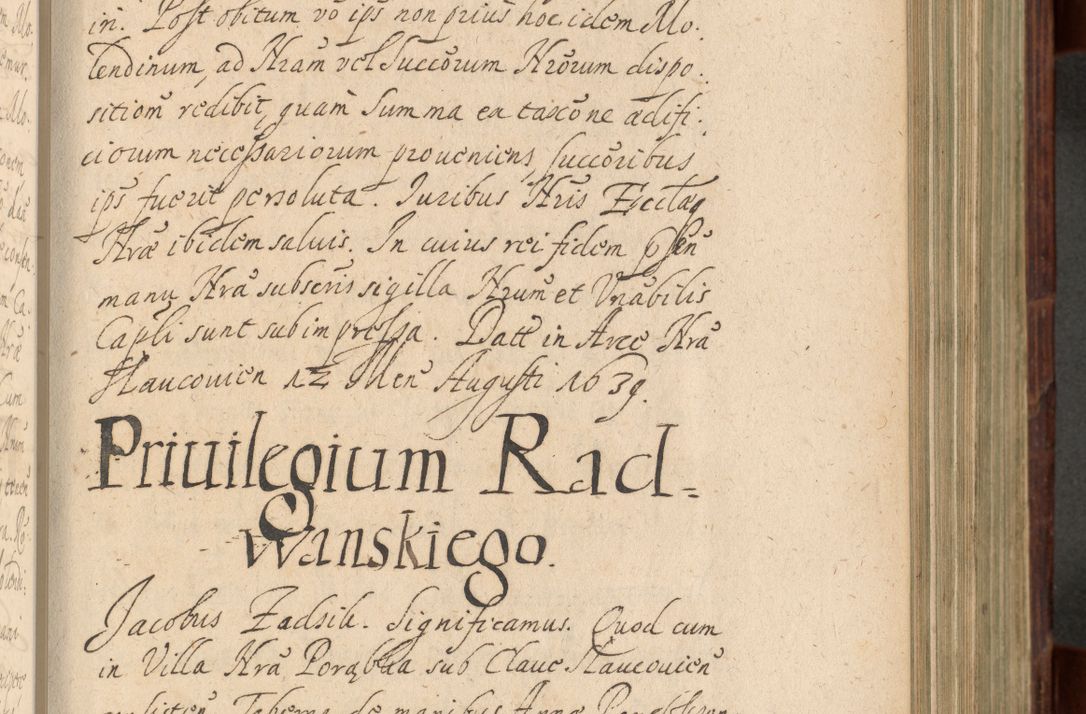 iri. Post obitum vo ips non prius hoc idem Mo.
lendinum, ad Nram vel Succorum Nrorum dispo.
sitiom redibit, quam Summa ea taxone ædifi.
ciorum necessariorum proueniens succoribus
ips fuerit persoluta. Iuribus Nris Eccltæq
Nræ ibidem saluis. In cuius rei fidem psen
manu Nra subscris sigilla Nrum et Vnabilis
Capli sunt subimpressa. Datt in Arce Nra
Slaucouien 12 Men Augusti 1639.
Priuilegium Rad=
wanskiego.
Jacobus Zadsik. Significamus. Quod cum
in Villa Nra Porąbka sub Claue Slaucouien
Taberna de manibus Annæ